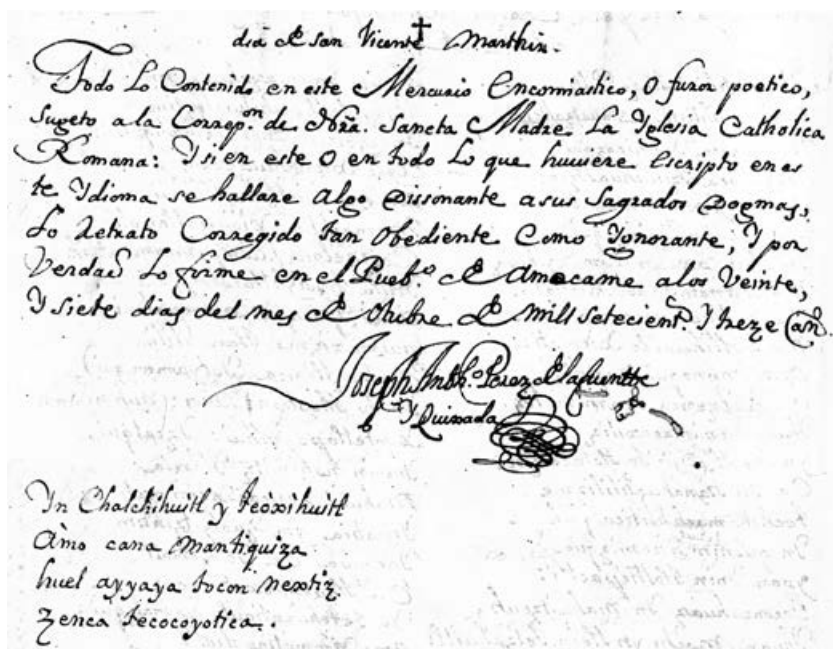 dia de san Vicente Marthir.
Todo Lo Contenido en este Mercurio Encomiastico, O furor poetico,
Sugeto a la Correpon. de Nra. Sancta Madre La Yglesia Catholica
Romana: Y si en este O en todo Lo que huuiere Escripto en es
te Ydioma se hallare Algo Dissonante a sus Sagrados Dogmas,
Lo Retrato Corregido tan Obediente Como Ygnorante, Y por
Verdad Lo firme en el Puebo. de Amecame a los Veinte,
Y siete dias del mes de Otubre de Mill setecient. Y treze Añ.
Joseph Anto. Perez de la fuentte
Y Quixada
Yn Chalchihuitl y teòxihuitl
Àmo cana mantiquiza
huel ayyaya tocon nextiz
zenca tecocoyotica.